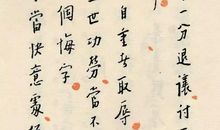 一分退讓討一
自重者取辱
世功勞當不
個悔字
當快意處